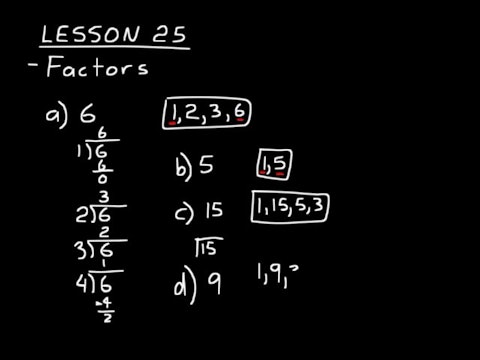 LESSON 25
- Factors
a) 6 1, 2, 3, 6
6
1)6
6
0
b) 5 1, 5
3
2)6
c) 15 1, 15, 5, 3
2
3)6
15
1
4)6
d) 9 1, 9,
-4
2